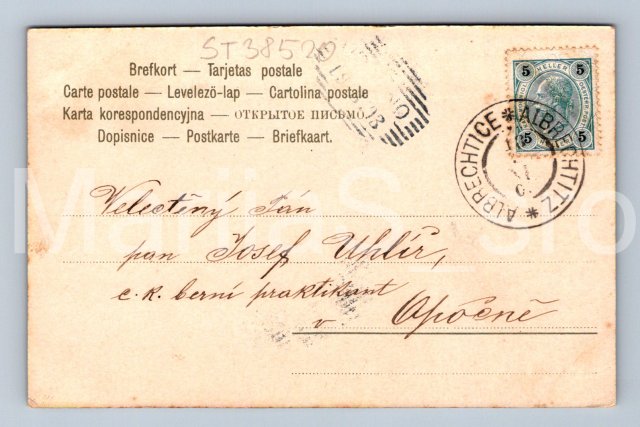 ST38520
Brefkort — Tarjetas postale
Carte postale — Levelezö-lap — Cartolina postale
Karta korespondencyjna — ОТКРЫТОЕ ПИСЬМО.
Dopisnice — Postkarte — Briefkaart.
5 HELLER 5
5 5
ALBRECHTICE * ALBRECHTITZ *
Velectěný Pán
pan Josef Uhlíř,
c. k. berní praktikant
v Opočně